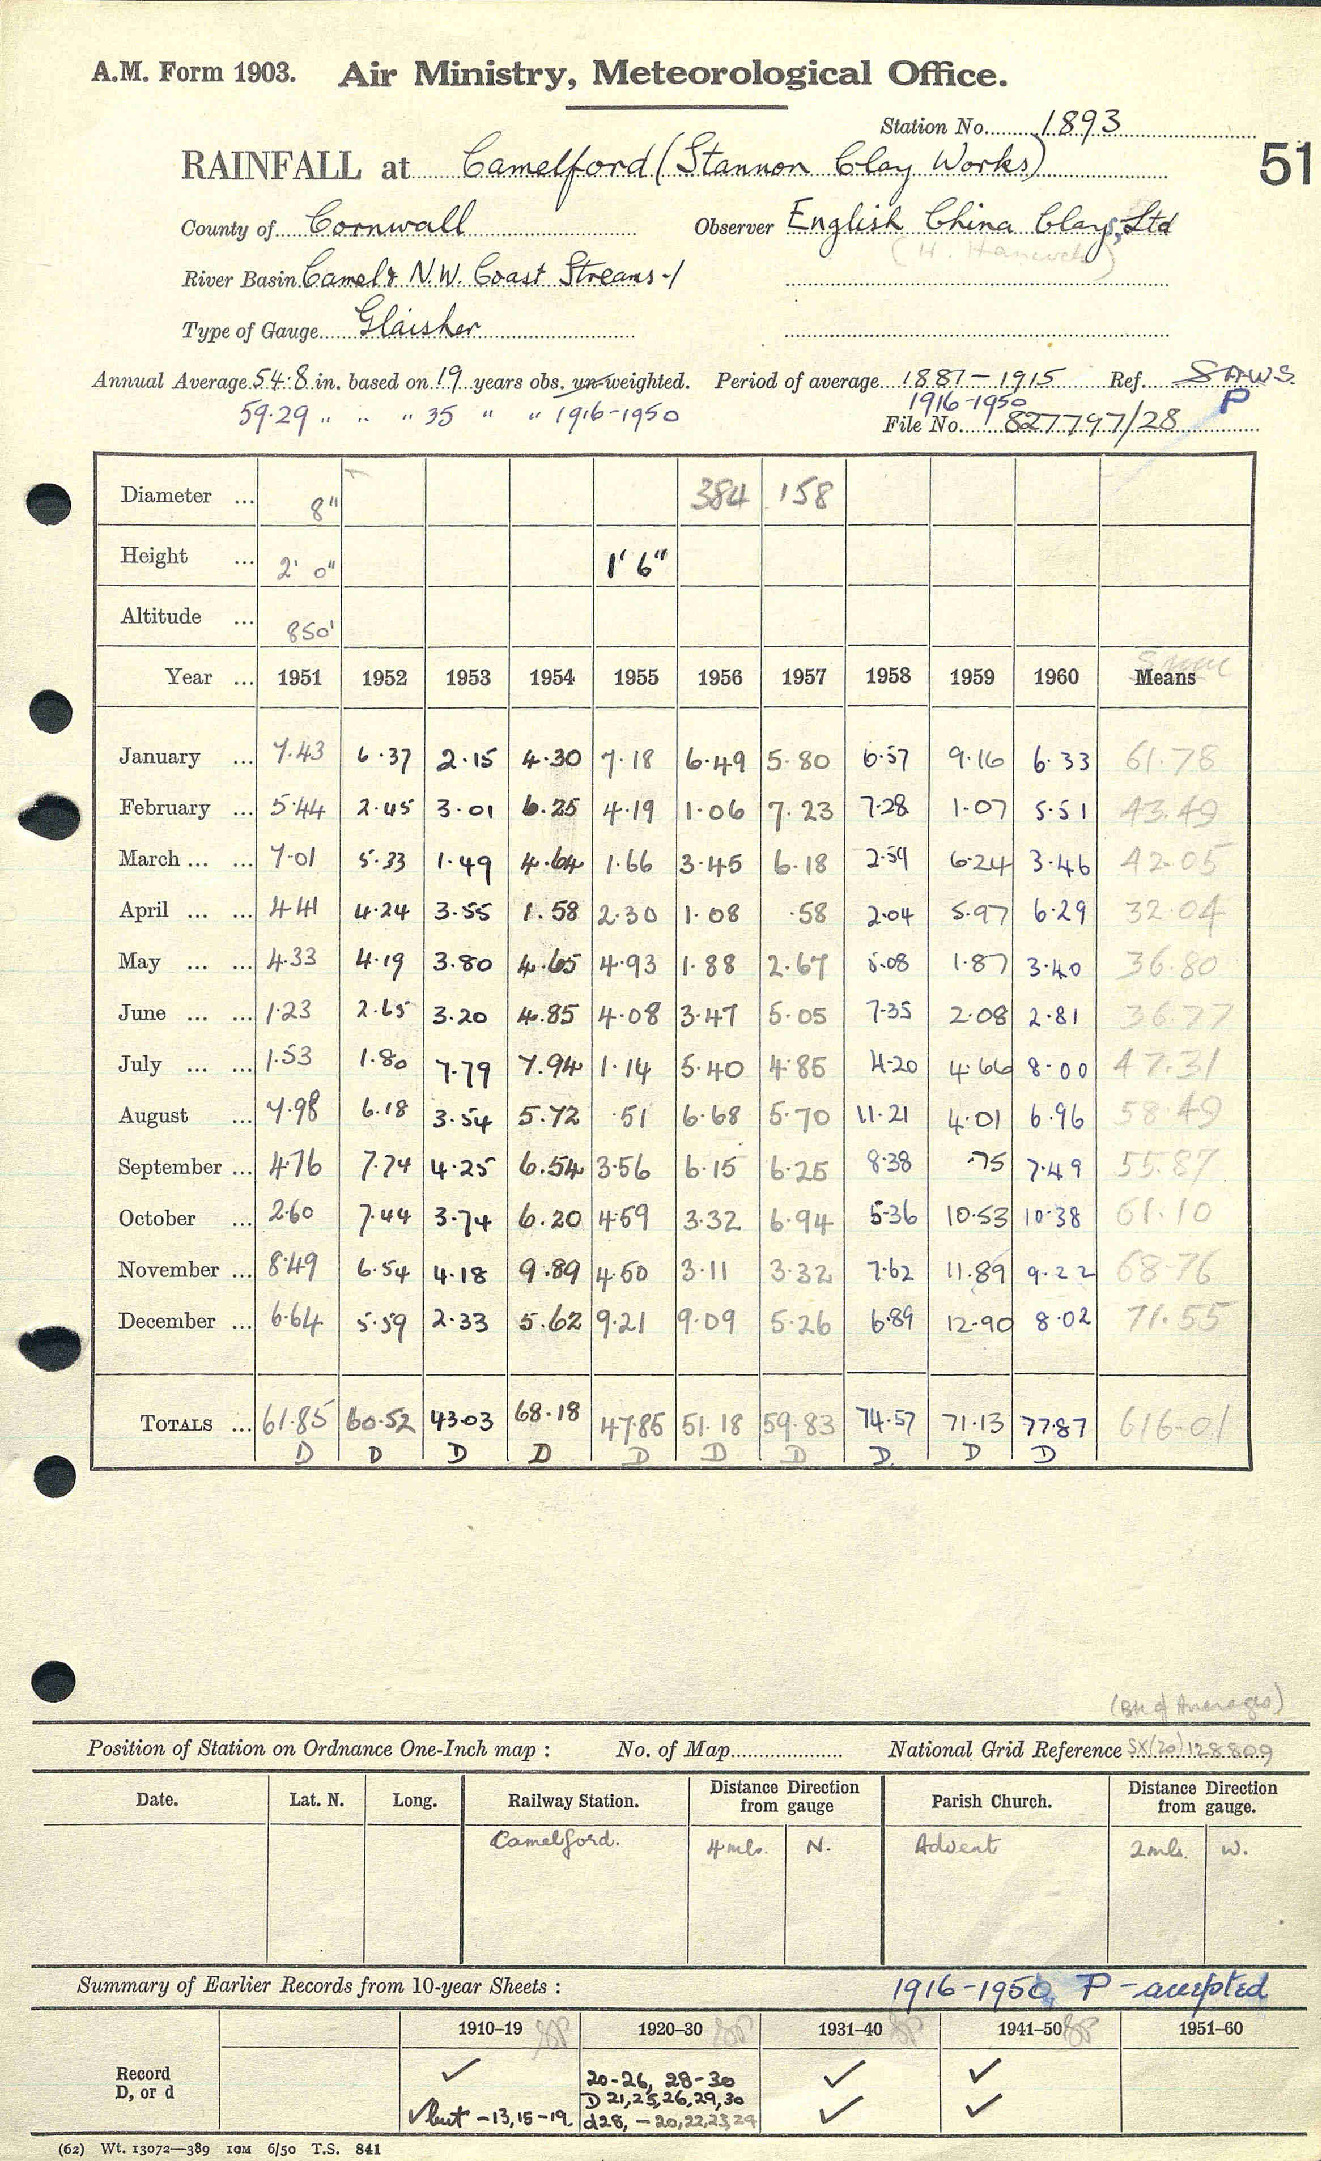 A.M. Form 1903. Air Ministry, Meteorological Office.
Station No. 1893
RAINFALL at Camelford (Stannon Clay Works) 51
County of Cornwall Observer English China Clays, Ltd
River Basin Camel & N.W. Coast Streams -1 (H. Hancock)
Type of Gauge Glaisher
Annual Average 54.8 in. based on 19 years obs. un-weighted. Period of average 1881-1915 Ref. S.A.W.S.
59.29 " " " 35 " " 1916-1950 1916-1950 P
File No. 827797/28
Diameter ... 8" 384 158
Height ... 2' 0" 1' 6"
Altitude ... 850'
Year ... 1951 1952 1953 1954 1955 1956 1957 1958 1959 1960 Means
January ... 7.43 6.37 2.15 4.30 7.18 6.49 5.80 6.57 9.16 6.33 61.78
February ... 5.44 2.45 3.01 6.25 4.19 1.06 7.23 7.28 1.07 5.51 43.49
March ... ... 7.01 5.33 1.49 4.64 1.66 3.45 6.18 2.59 6.24 3.46 42.05
April ... ... 4.41 4.24 3.55 1.58 2.30 1.08 .58 2.04 5.97 6.29 32.04
May ... ... 4.33 4.19 3.80 4.65 4.93 1.88 2.67 5.08 1.87 3.40 36.80
June ... ... 1.23 2.65 3.20 4.85 4.08 3.47 5.05 7.35 2.08 2.81 36.77
July ... ... 1.53 1.80 7.79 7.94 1.14 5.40 4.85 4.20 4.66 8.00 47.31
August ... 7.98 6.18 3.54 5.72 .51 6.68 5.70 11.21 4.01 6.96 58.49
September ... 4.76 7.74 4.25 6.54 3.56 6.15 6.25 8.38 .75 7.49 55.87
October ... 2.60 7.44 3.74 6.20 4.59 3.32 6.94 5.36 10.53 10.38 61.10
November ... 8.49 6.54 4.18 9.89 4.50 3.11 3.32 7.62 11.89 9.22 68.76
December ... 6.64 5.59 2.33 5.62 9.21 9.09 5.26 6.89 12.90 8.02 71.55
TOTALS ... 61.85 60.52 43.03 68.18 47.85 51.18 59.83 74.57 71.13 77.87 616.01
D D D D D D D D D D
(BK of Averages)
Position of Station on Ordnance One-Inch map : No. of Map National Grid Reference SX(20)128809
Date. Lat. N. Long. Railway Station. Distance Direction from gauge Parish Church. Distance Direction from gauge.
Camelford. 4 mls. N. Advent 2 mls. W.
Summary of Earlier Records from 10-year Sheets : 1916-1950, P - accepted
1910-19 1920-30 1931-40 1941-50 1951-60
Record ✓ 20-26, 28-30 ✓ ✓
D, or d D 21,25,26,29,30
✓ but -13,15-19 d28, -20,22,23,24 ✓ ✓
(62) Wt. 13072—389 IOM 6/50 T.S. 841